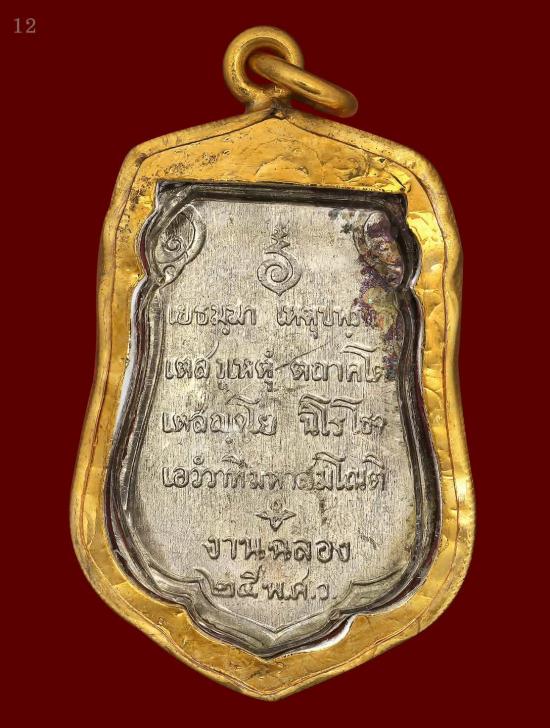 12
เยธมฺมา เหตุปพฺ
เตสํ เหตุํ ตถาคโต
เตสญฺจโย นิโรโธจ
เอวํวาทีมหาสมโณติ
งานฉลอง
๒๕ พ.ศ.ว.